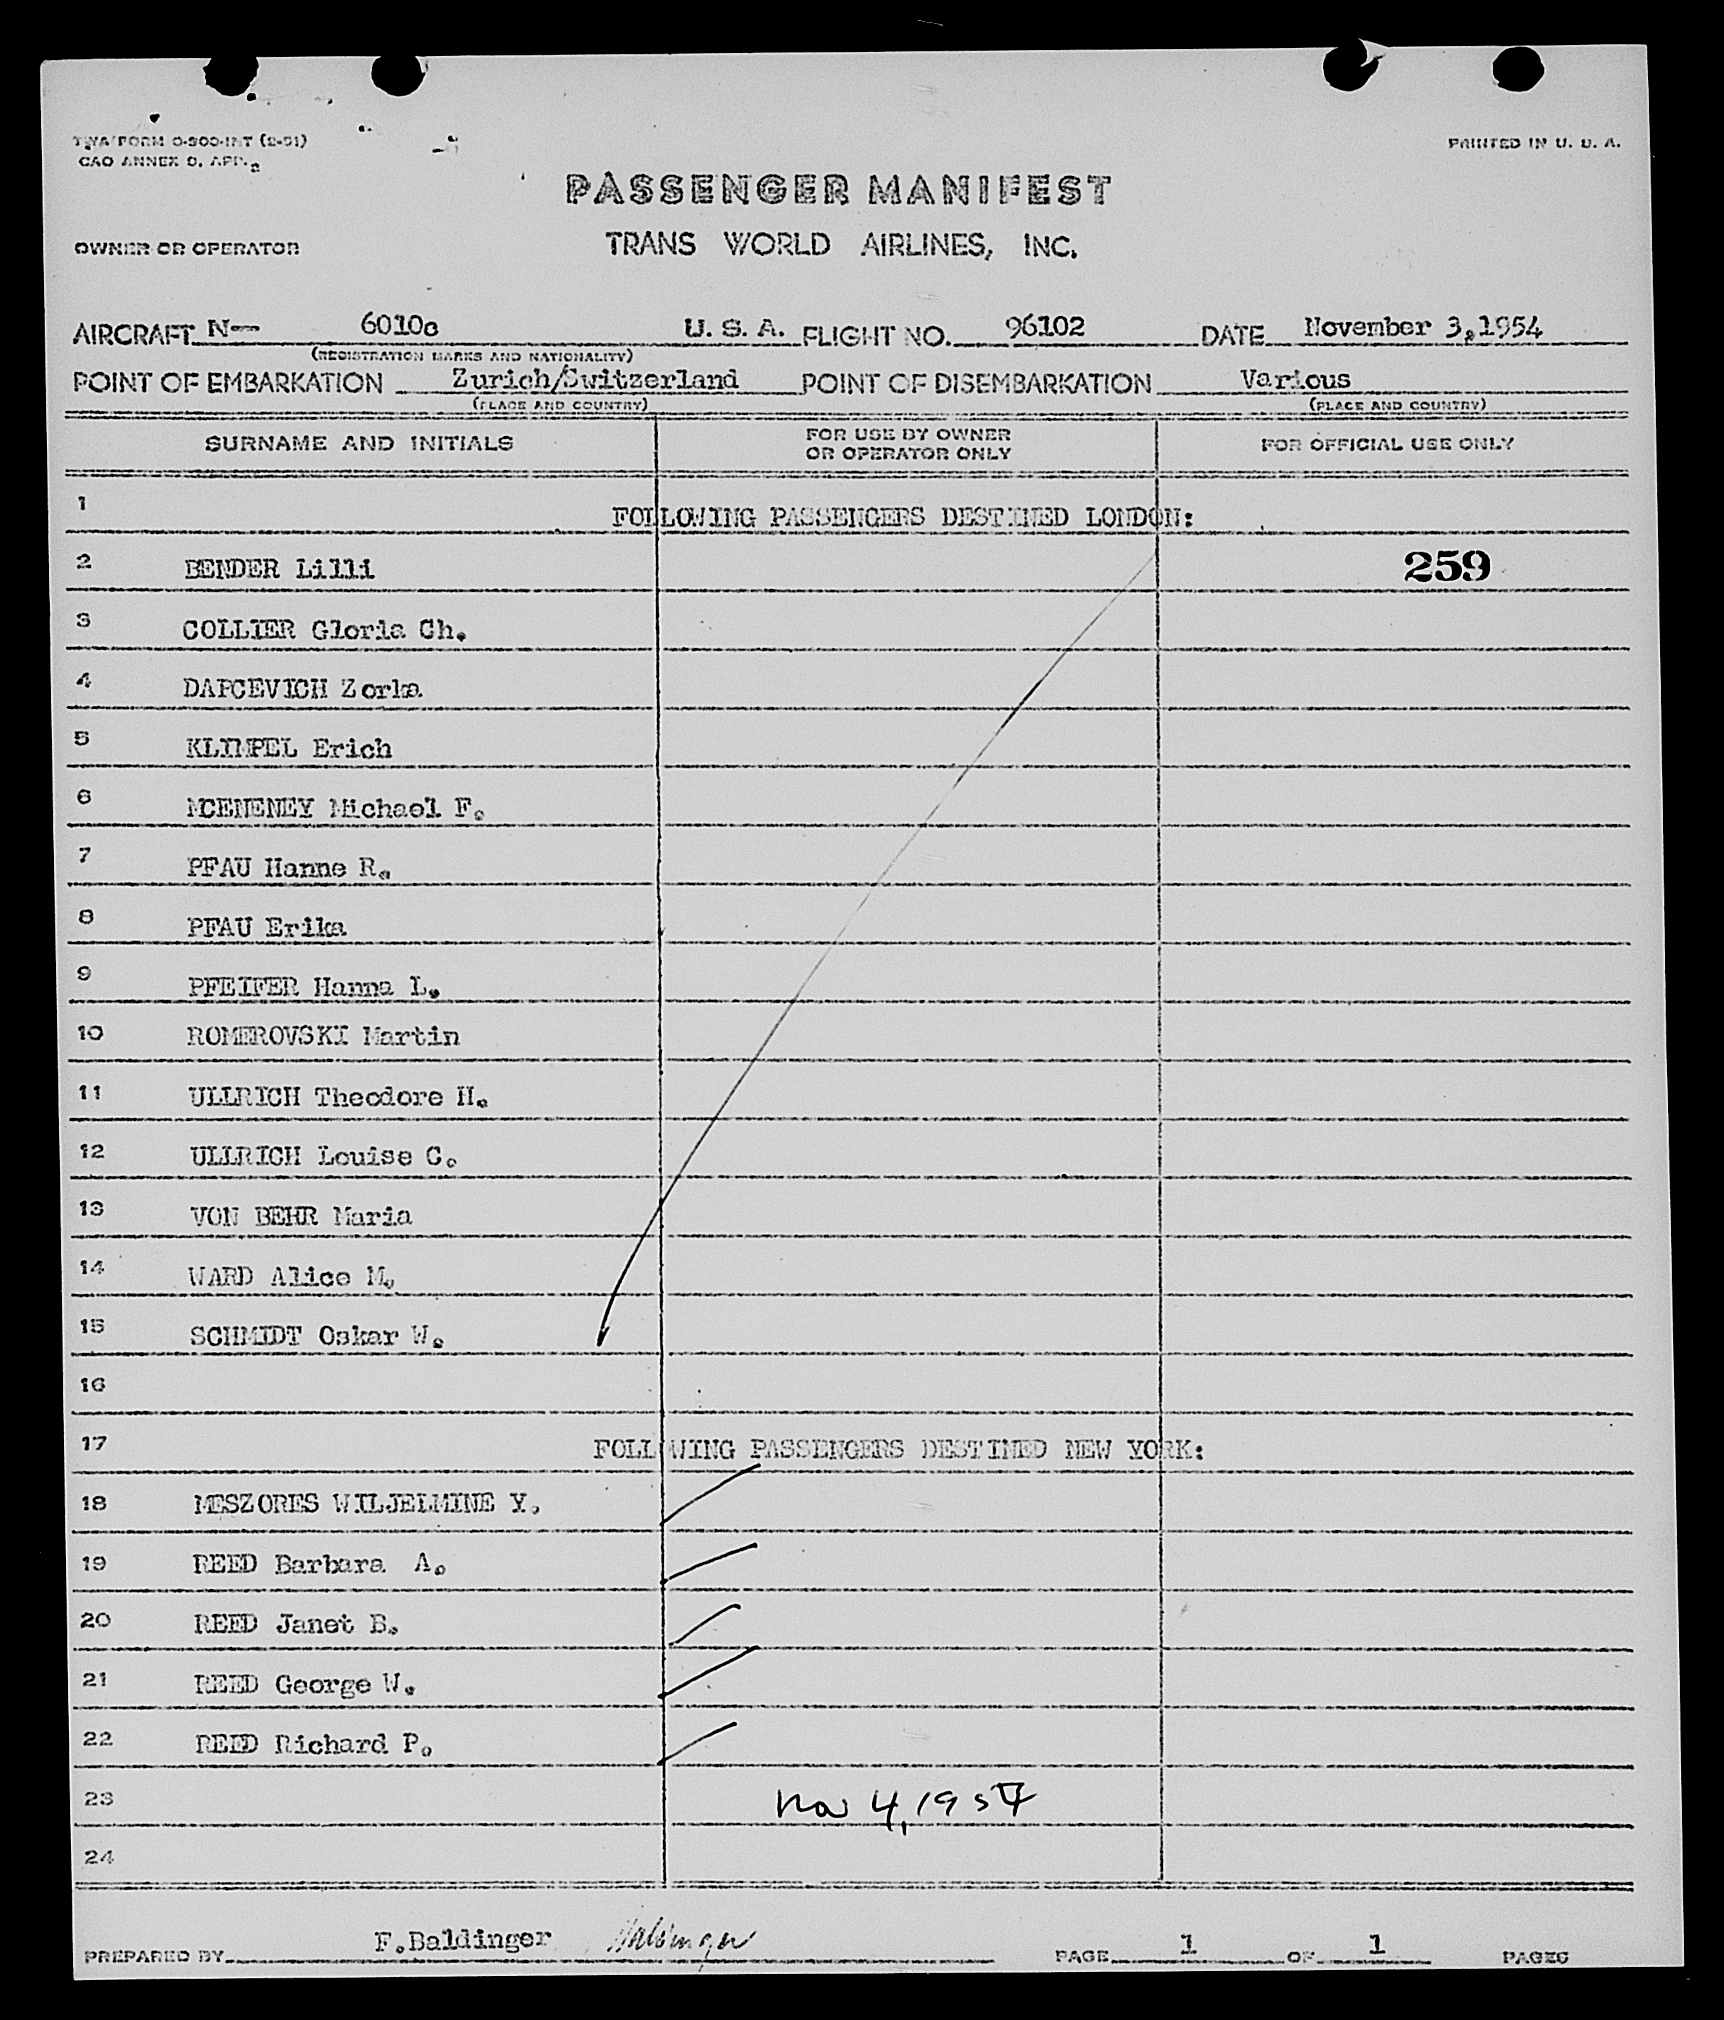 TWA FORM O-900-INT (2-51)
CAO ANNEX 9, APP.
PRINTED IN U. S. A.
PASSENGER MANIFEST
OWNER OR OPERATOR TRANS WORLD AIRLINES, INC.
AIRCRAFT N— 6010c U. S. A. FLIGHT NO. 96102 DATE November 3,1954
(REGISTRATION MARKS AND NATIONALITY)
POINT OF EMBARKATION Zurich/Switzerland POINT OF DISEMBARKATION Various
(PLACE AND COUNTRY) (PLACE AND COUNTRY)
SURNAME AND INITIALS FOR USE BY OWNER OR OPERATOR ONLY FOR OFFICIAL USE ONLY
1 FOLLOWING PASSENGERS DESTINED LONDON:
2 BENDER Lilli 259
3 COLLIER Gloria Ch.
4 DAPCEVICH Zorka
5 KLIMPEL Erich
6 MCENENEY Michael F.
7 PFAU Hanne R.
8 PFAU Erika
9 PFEIFER Hanna L.
10 ROMEROVSKI Martin
11 ULLRICH Theodore H.
12 ULLRICH Louise C.
13 VON BEHR Maria
14 WARD Alice M.
15 SCHMIDT Oskar W.
16
17 FOLLOWING PASSENGERS DESTINED NEW YORK:
18 MESZORES WILJELMINE Y.
19 REED Barbara A.
20 REED Janet B.
21 REED George W.
22 REED Richard P.
23 Nov 4, 1954
24
PREPARED BY F.Baldinger Baldinger PAGE 1 OF 1 PAGES